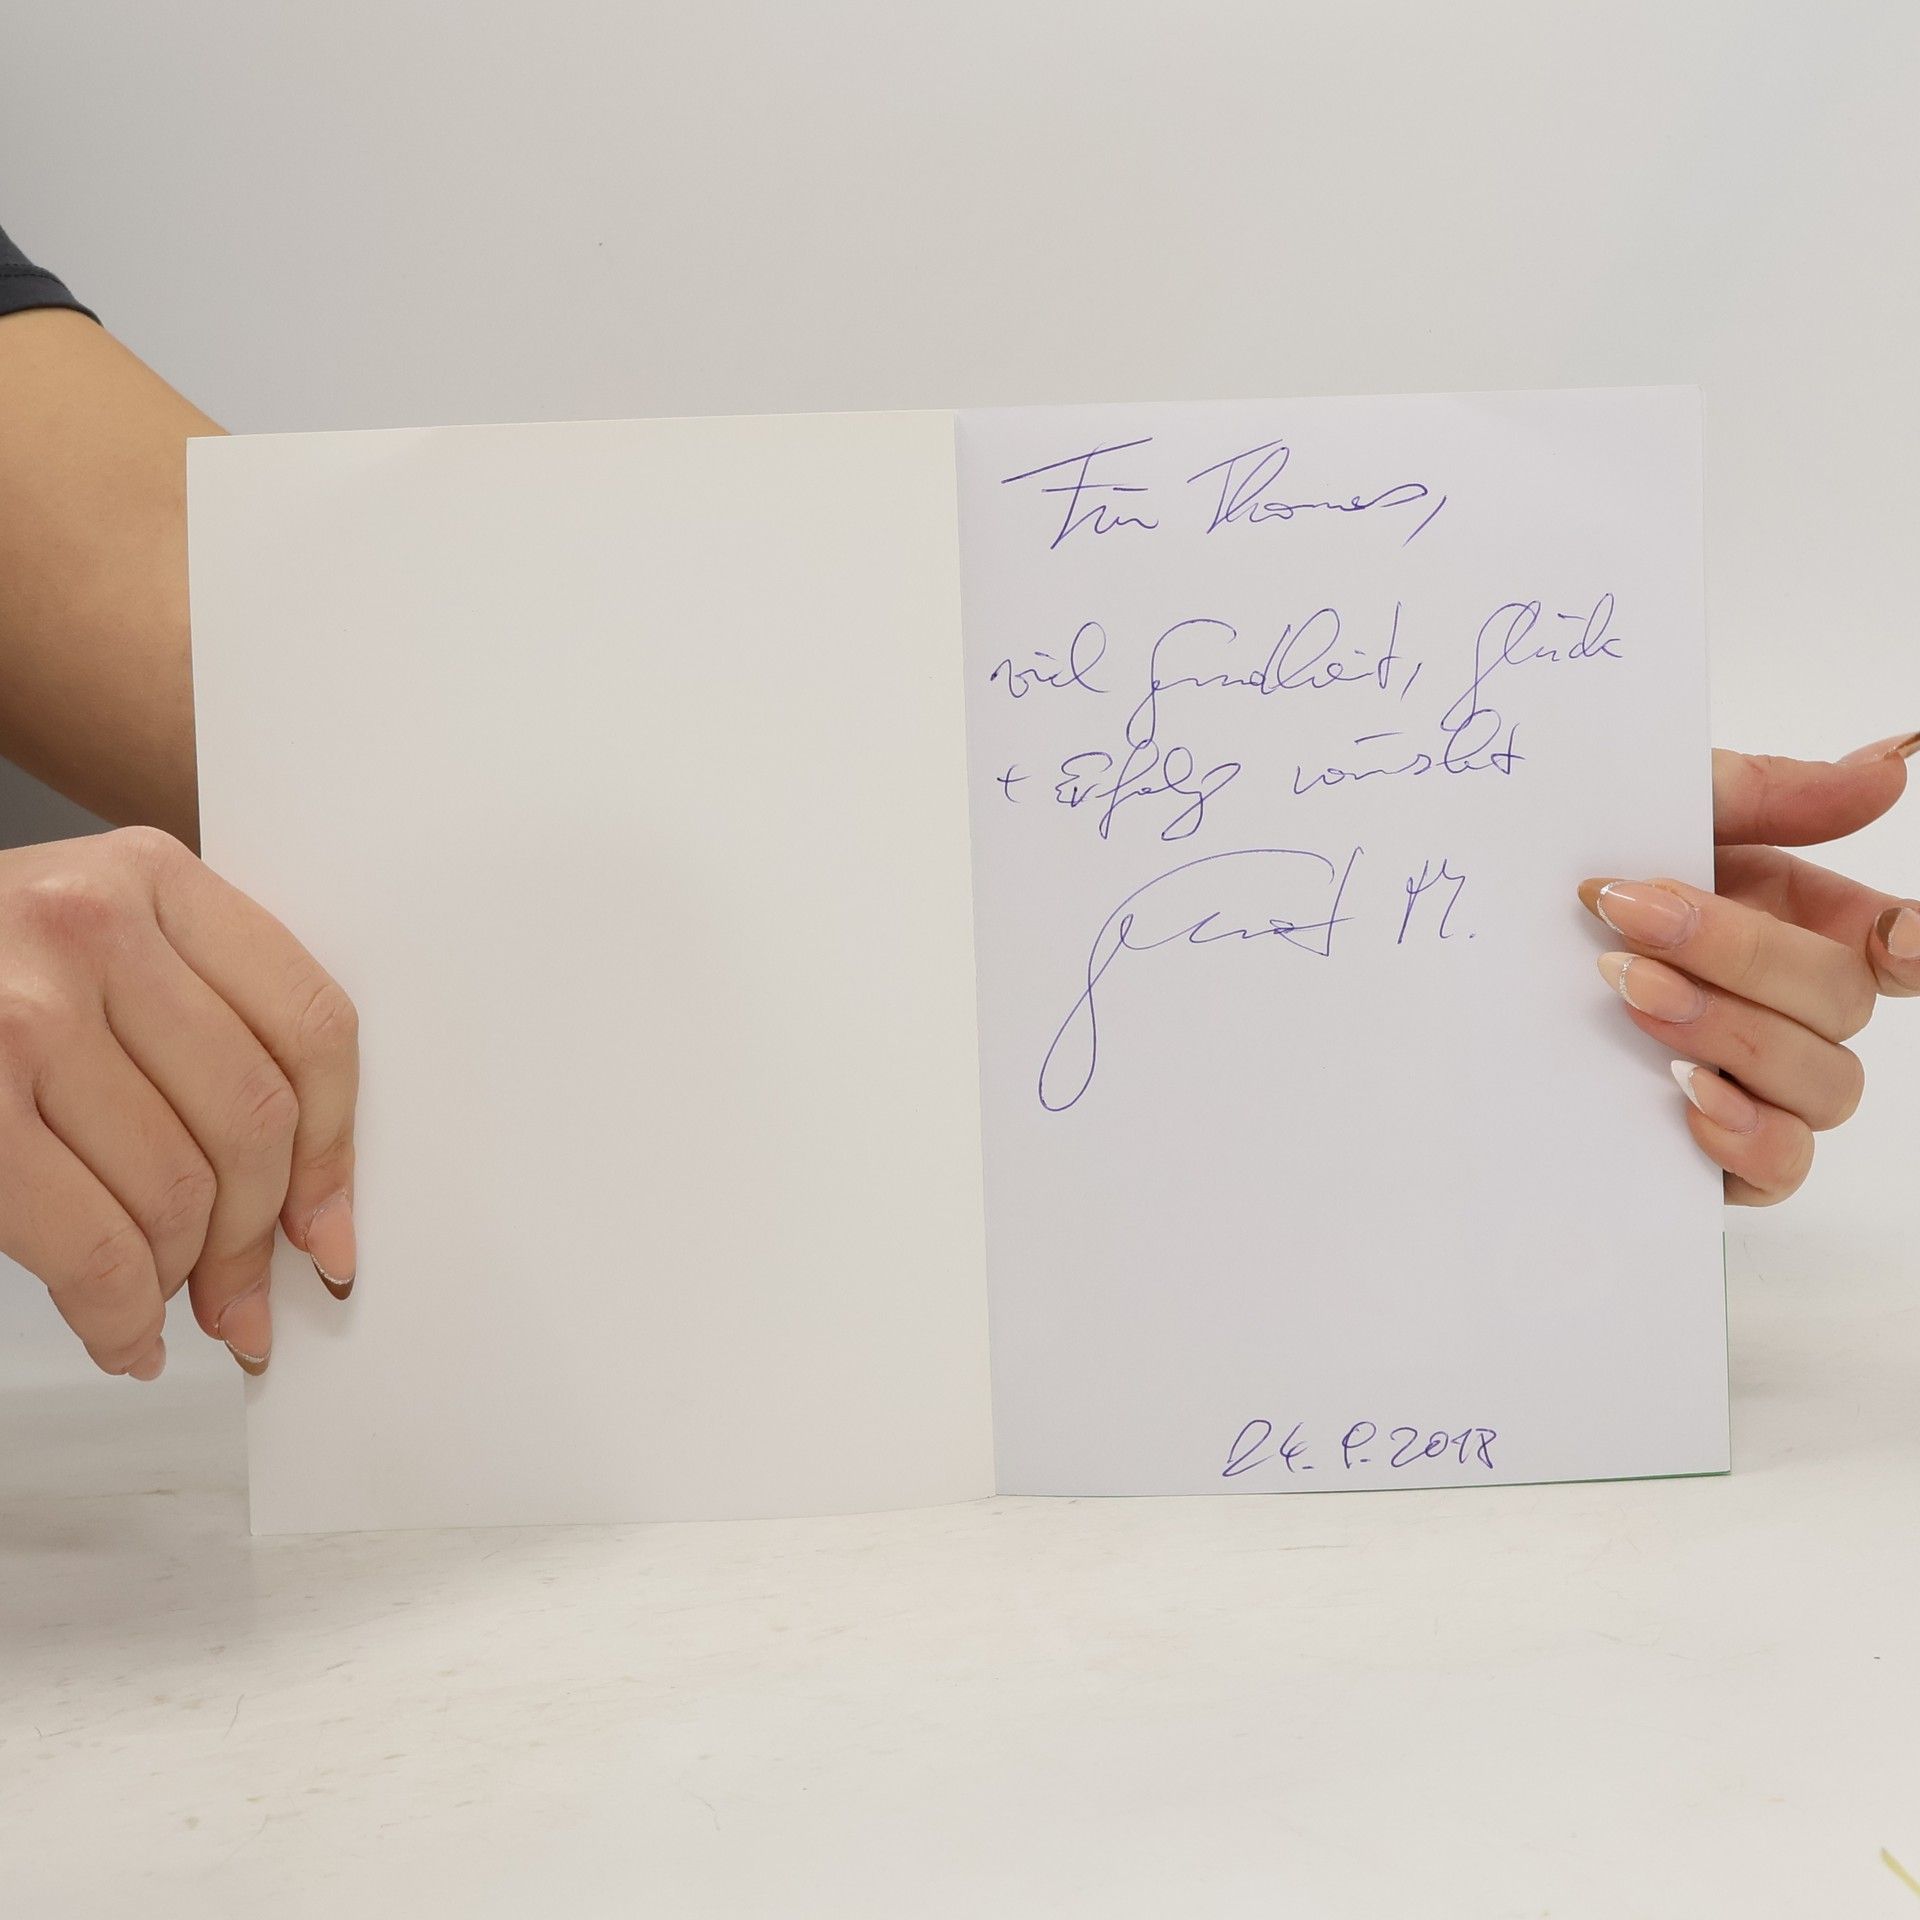 Für Thomas,
viel Gesundheit, Glück
+ Erfolg wünscht
Gernot M.
24.9.2018